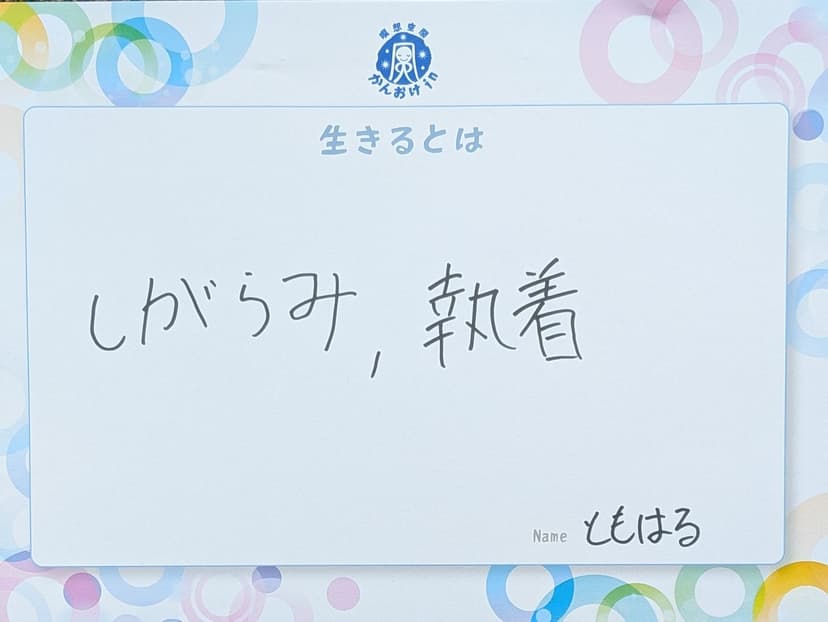 瞑想空間
かんおけin
生きるとは
しがらみ, 執着
Name ともはる